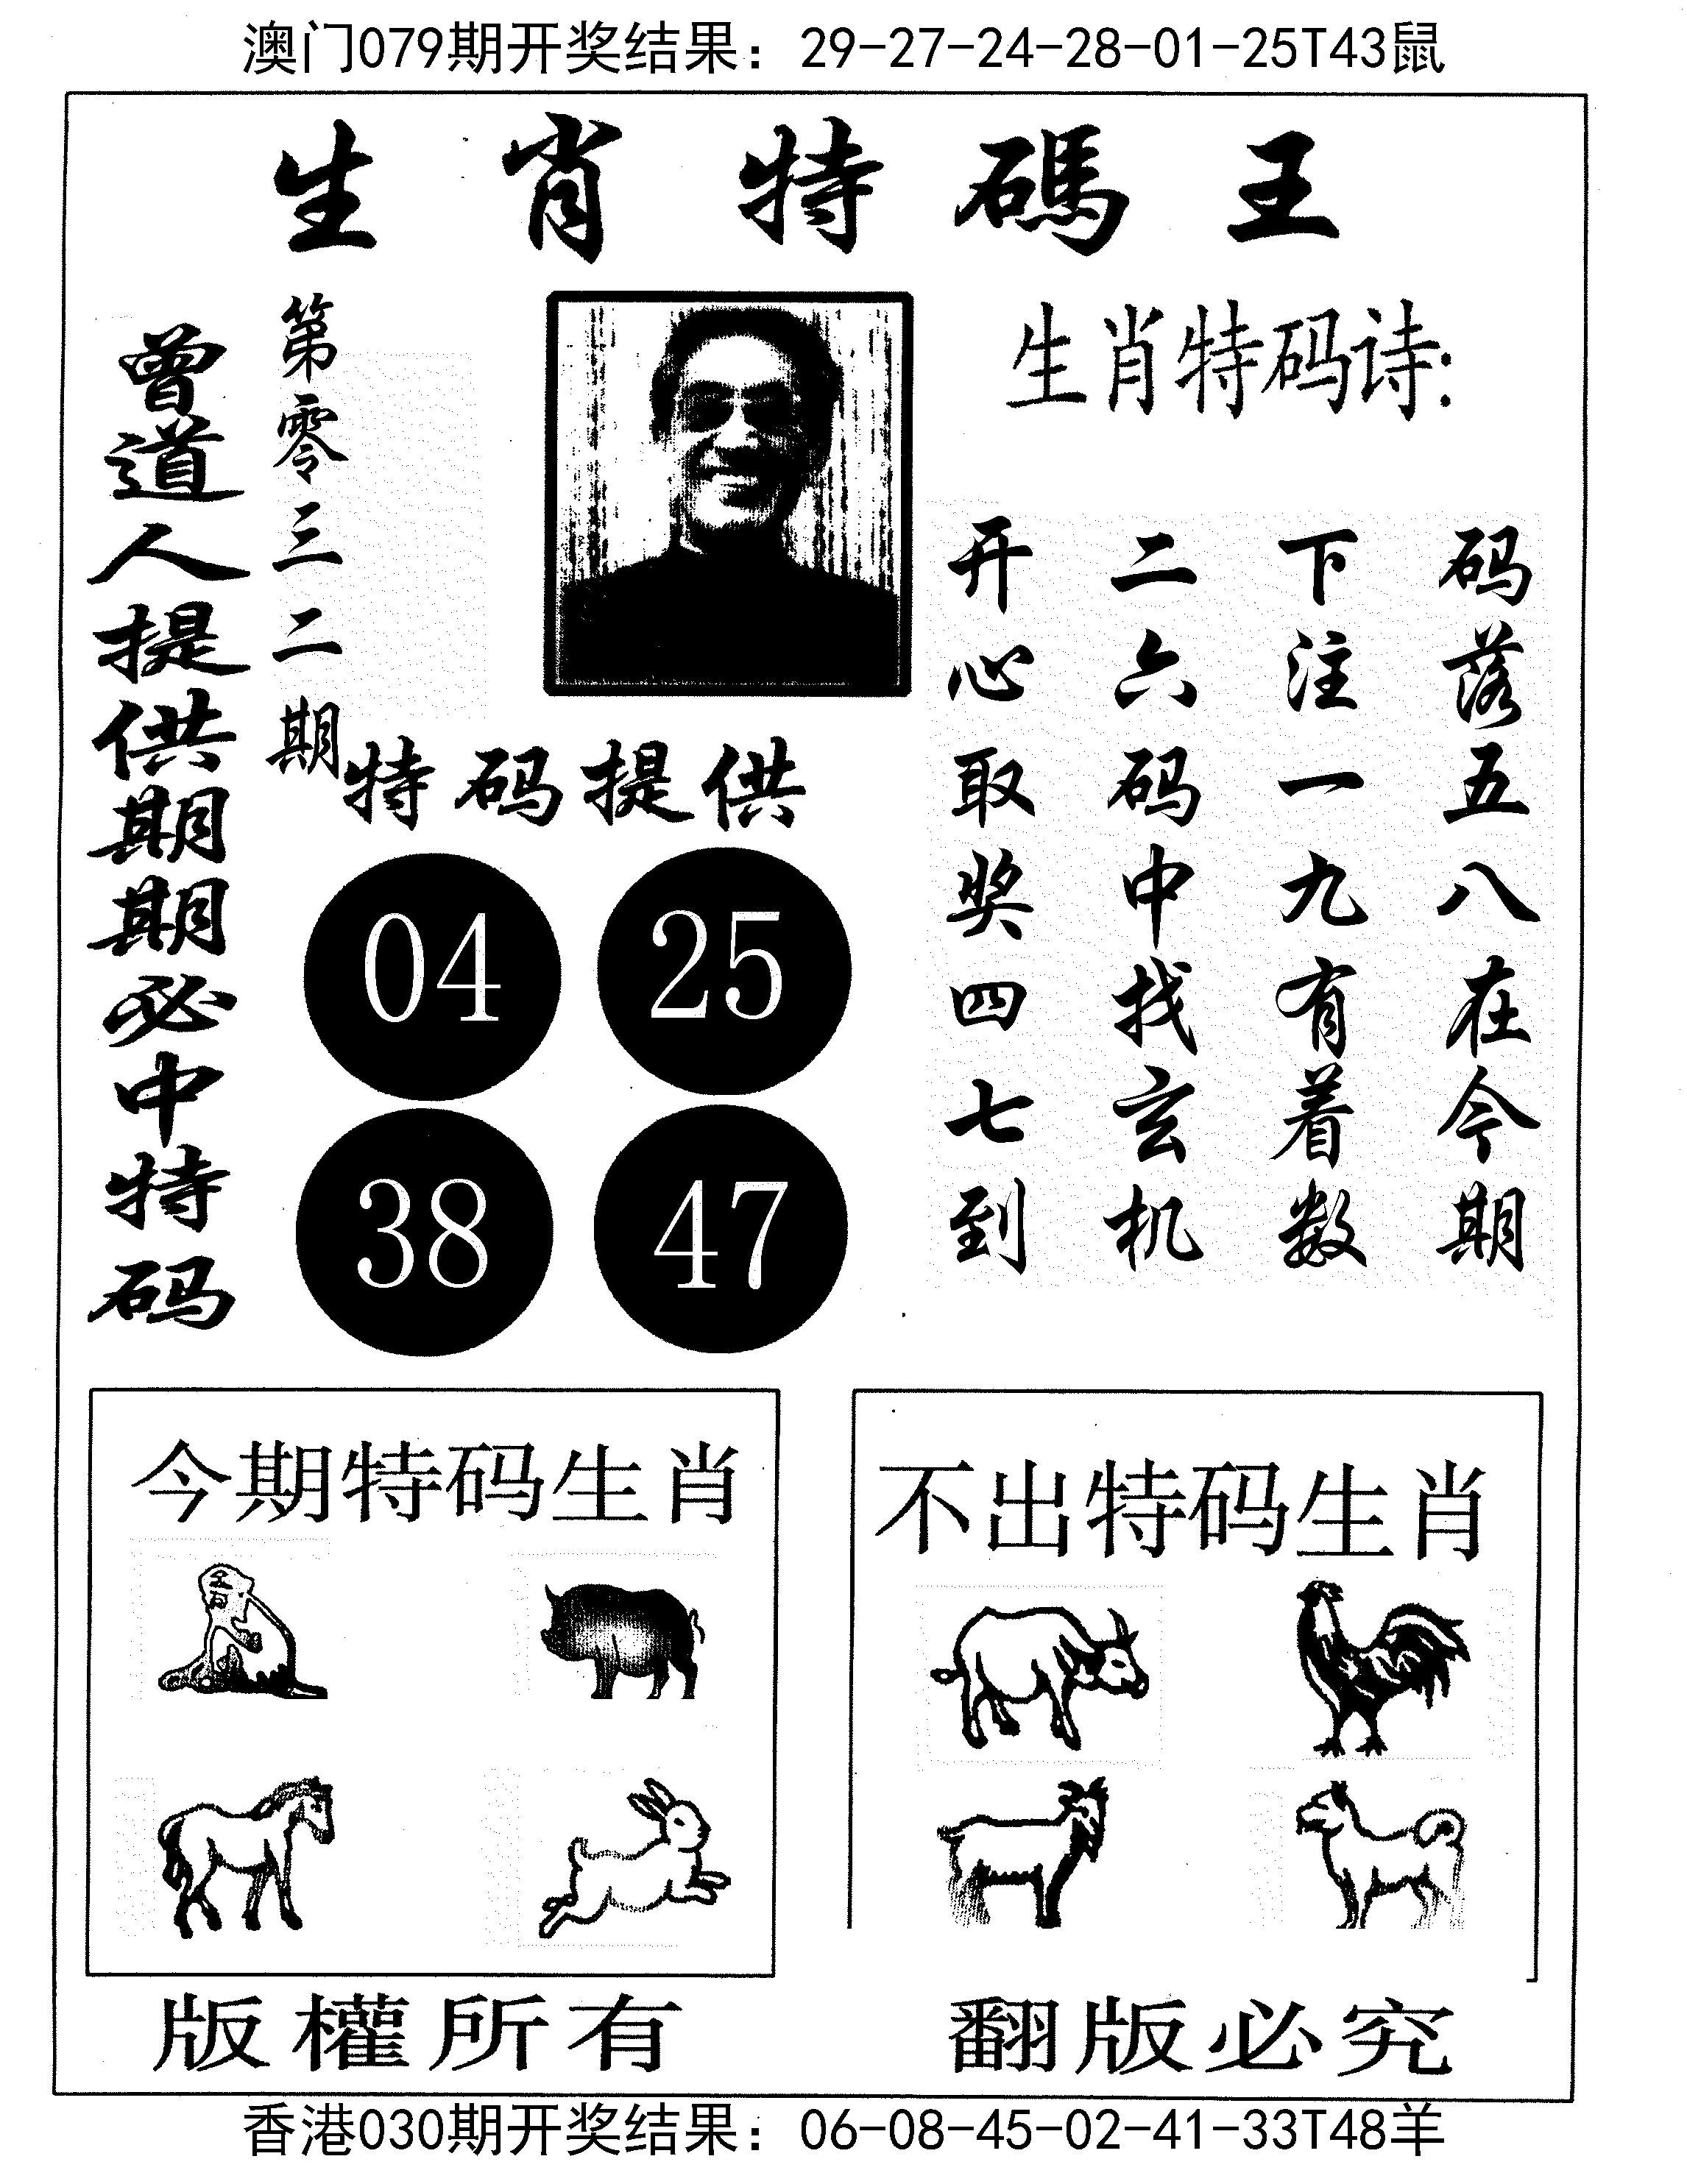 澳门079期开奖结果：29-27-24-28-01-25T43鼠
生肖特碼王
曾道人提供期期必中特码
第零三二期
特码提供
04 25
38 47
生肖特码诗:
码落五八在今期
下注一九有着数
二六码中找玄机
开心取奖四七到
今期特码生肖
不出特码生肖
版權所有
翻版必究
香港030期开奖结果：06-08-45-02-41-33T48羊